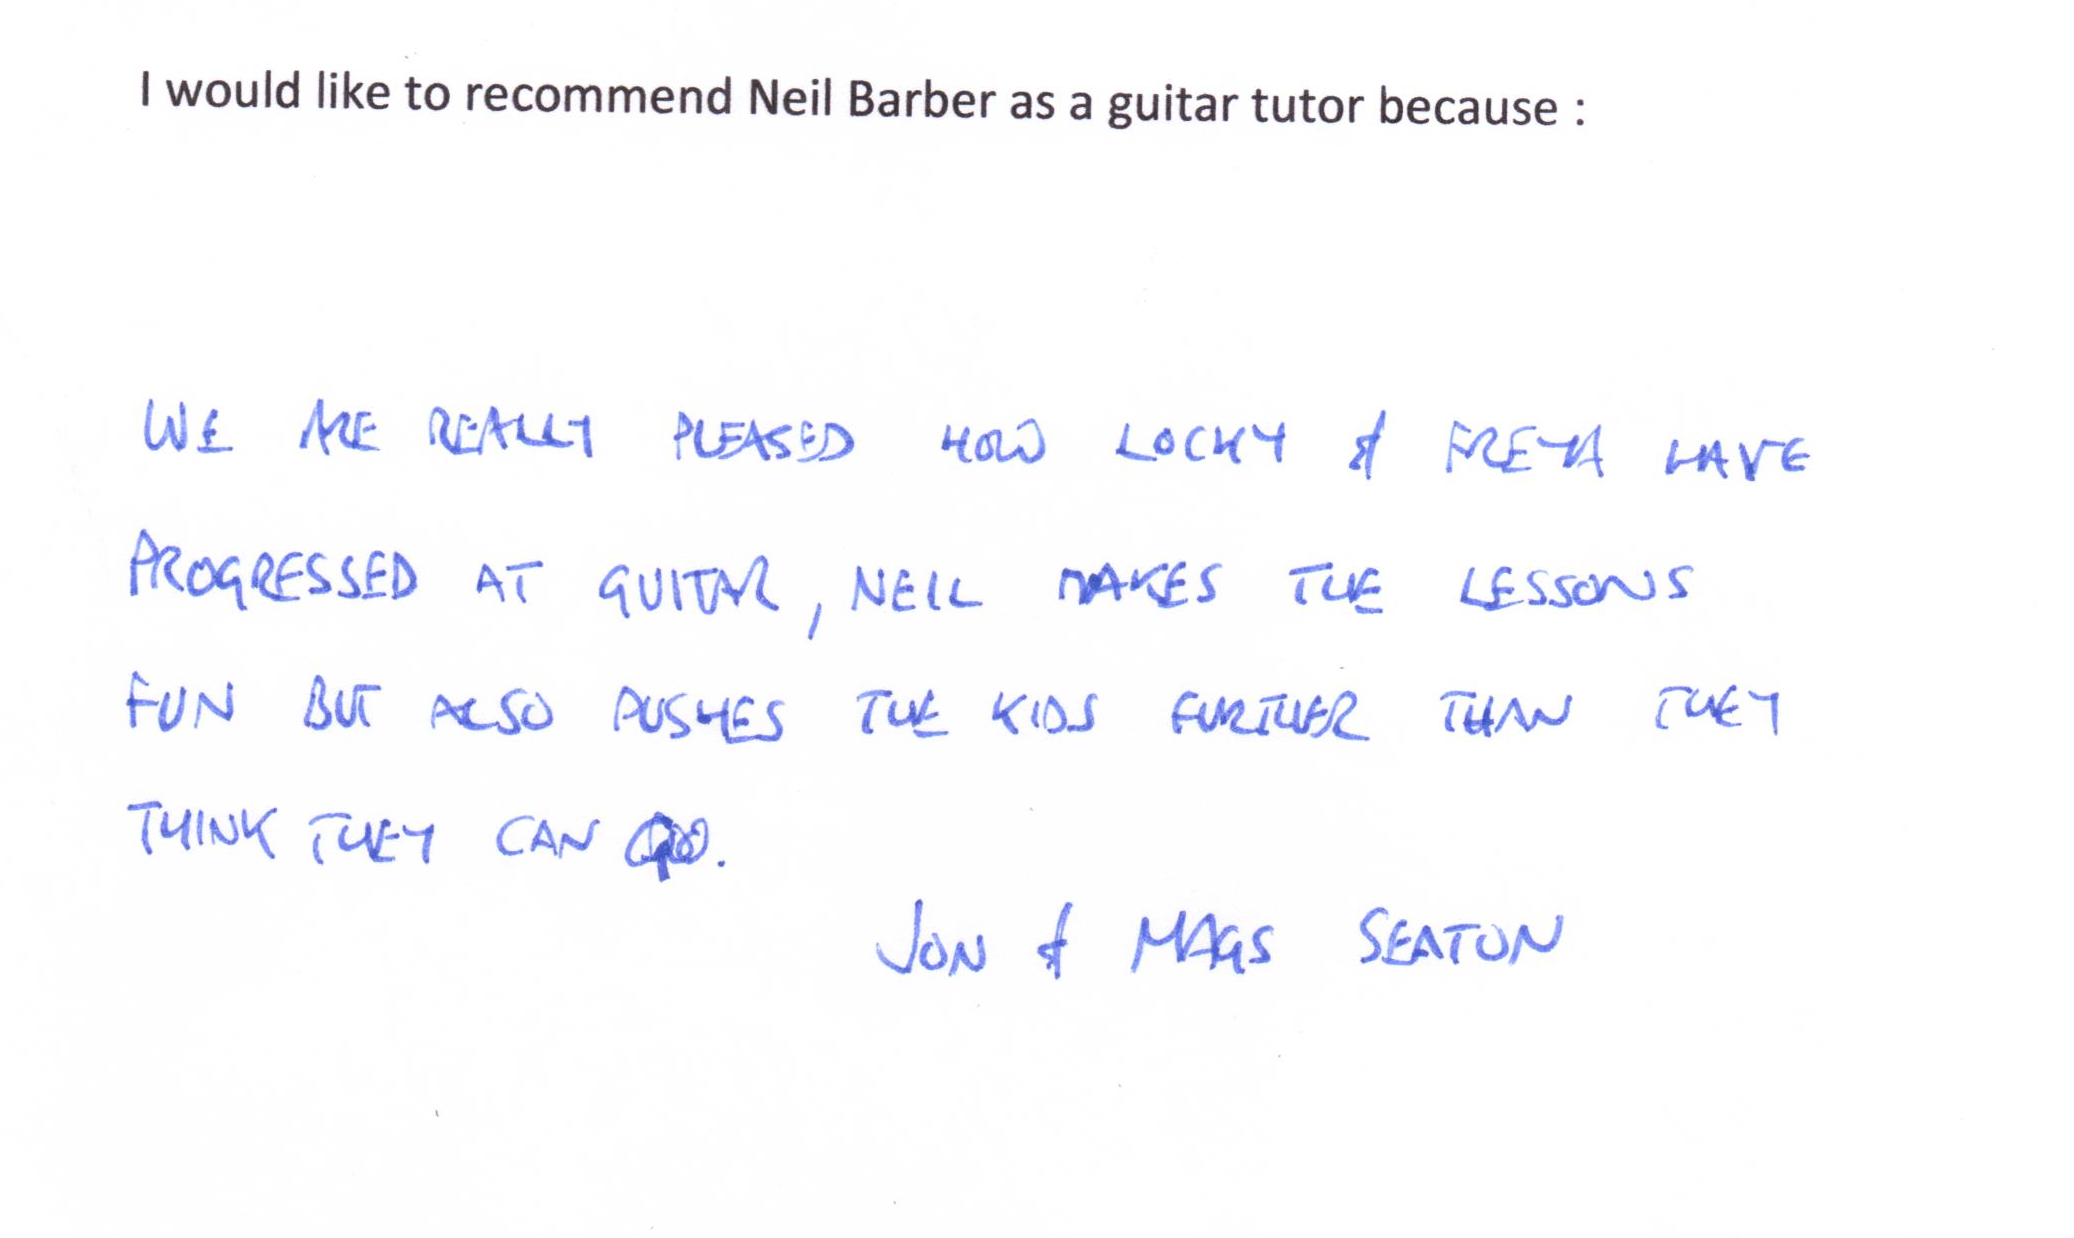 I would like to recommend Neil Barber as a guitar tutor because :
WE ARE REALLY PLEASED HOW LOCKY & FREYA HAVE
PROGRESSED AT GUITAR, NEIL MAKES THE LESSONS
FUN BUT ALSO PUSHES THE KIDS FURTHER THAN THEY
THINK THEY CAN GO.
JON & MAGS SEATON